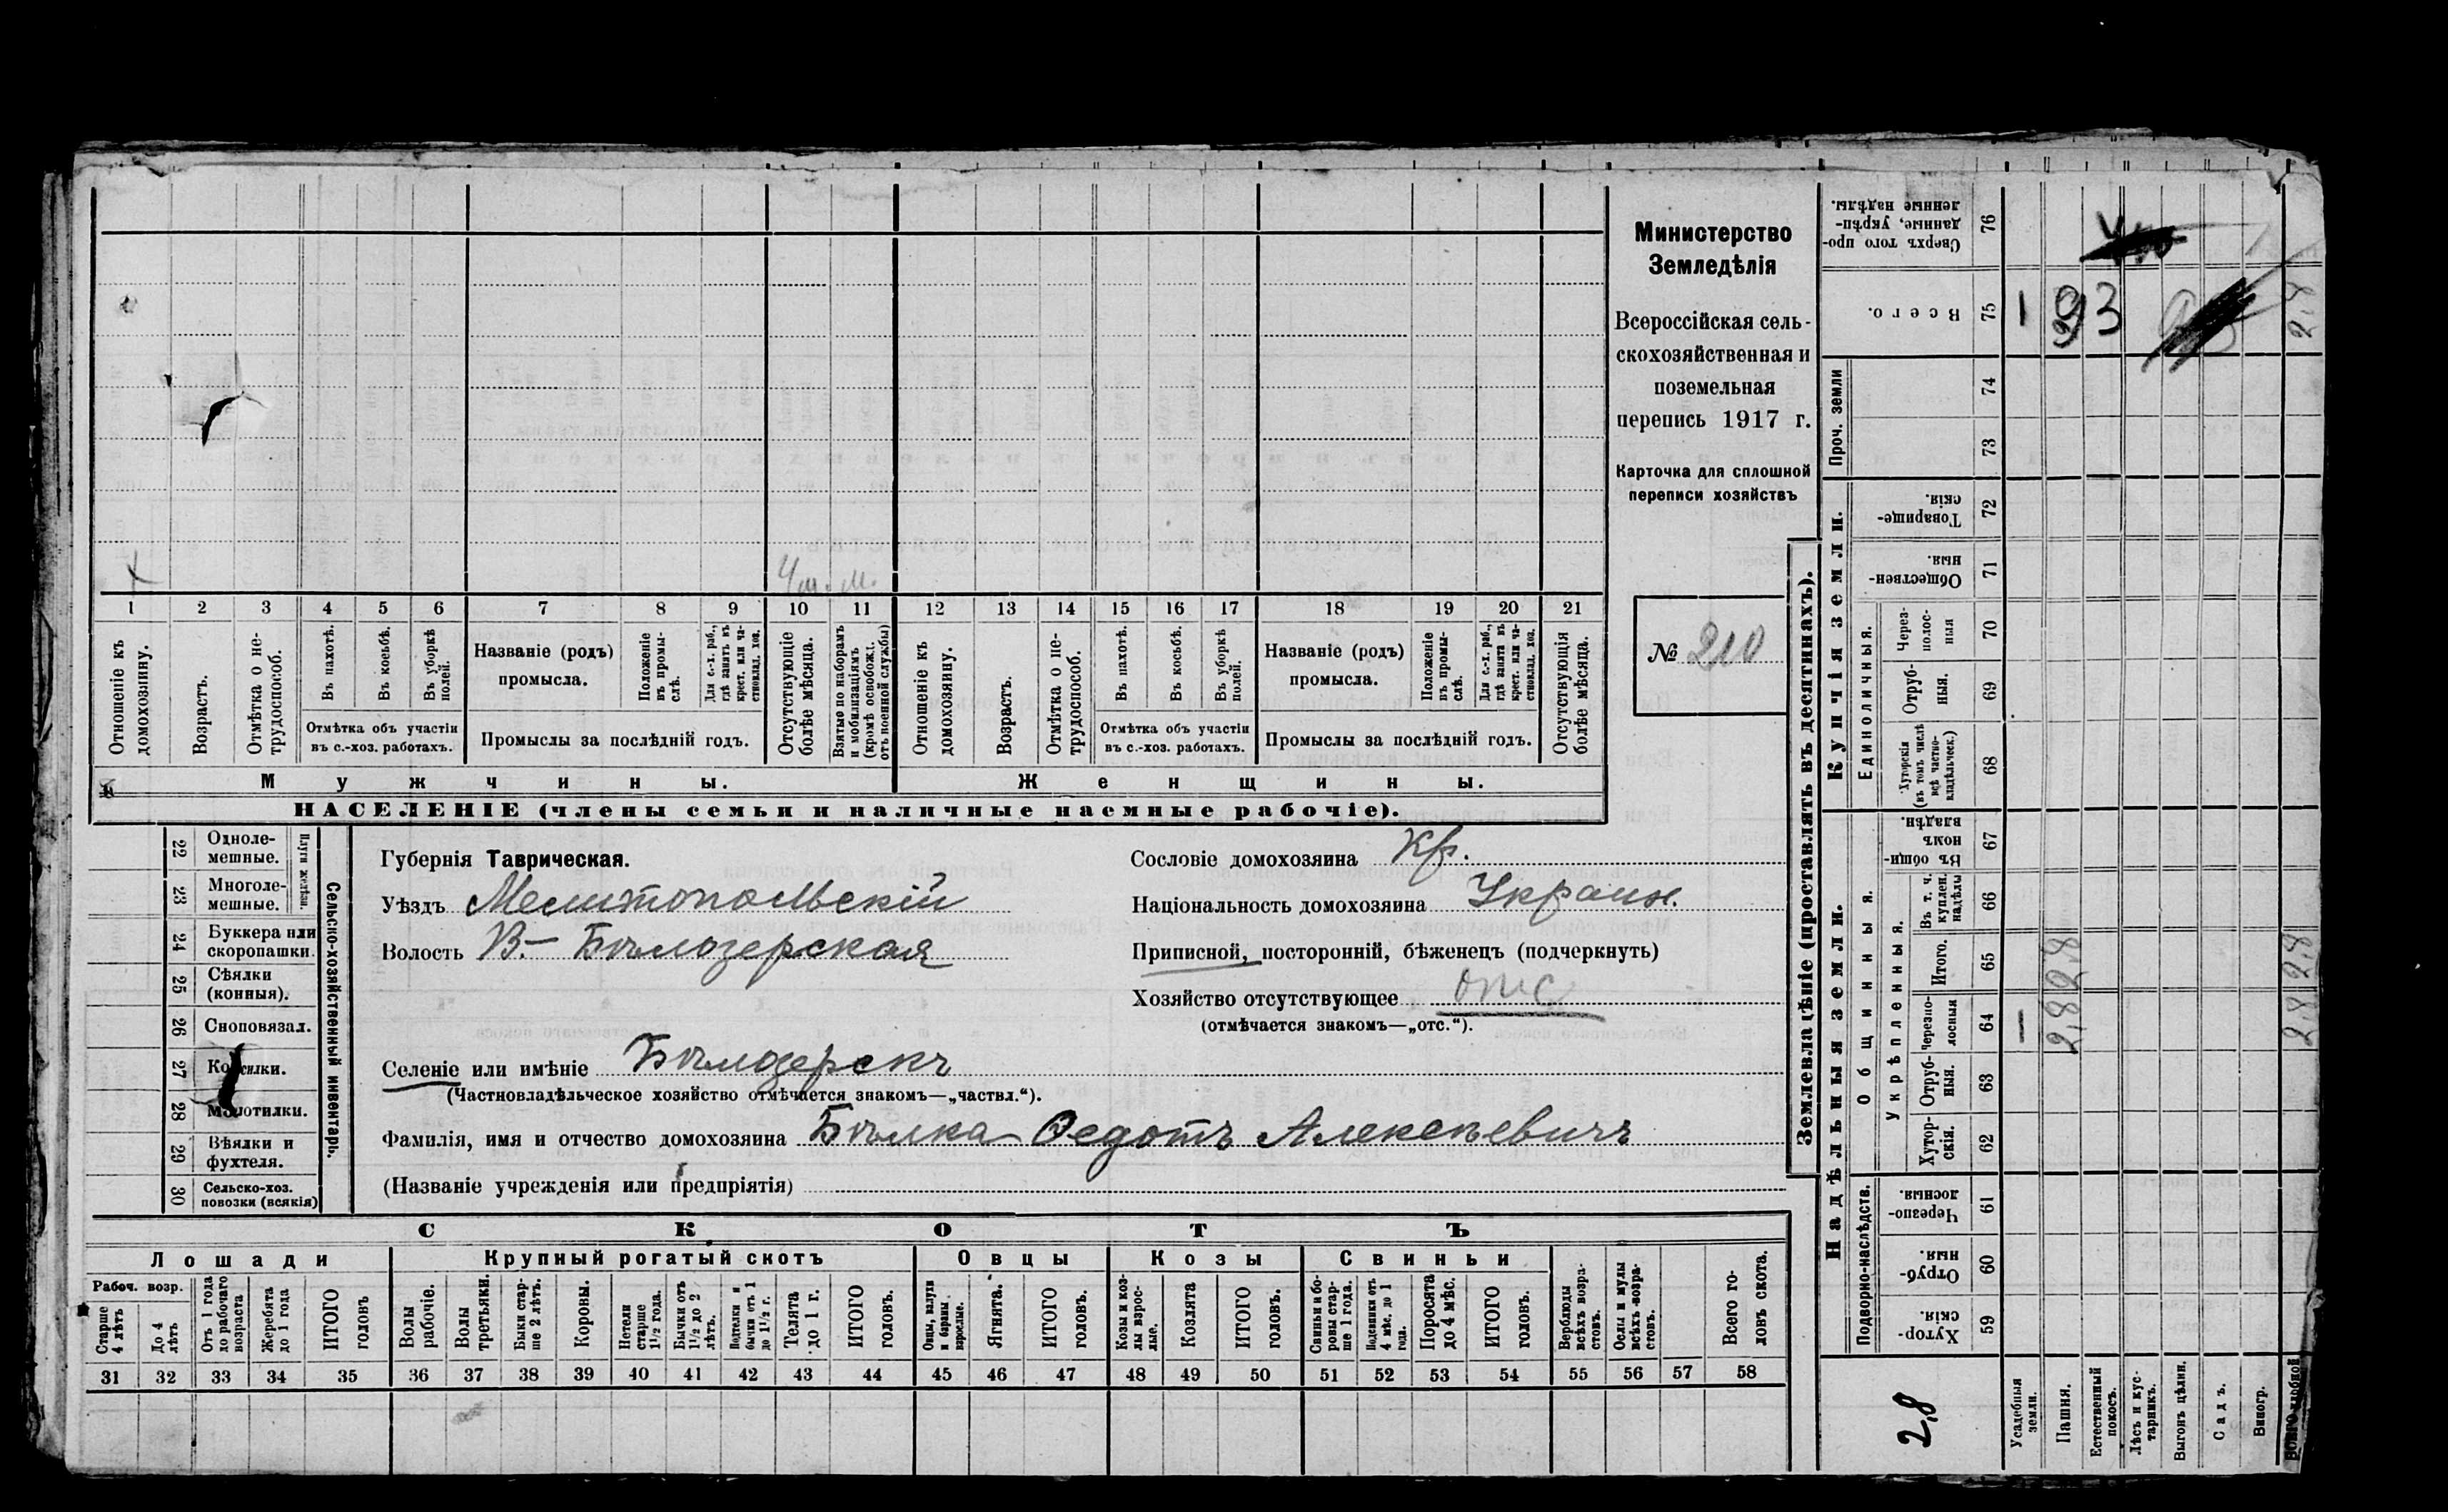 Министерство
Земледѣлія
Всероссійская сель-
скохозяйственная и
поземельная
перепись 1917 г.
Карточка для сплошной
переписи хозяйствъ
№ 210
1 2 3 4 5 6 7 8 9 10 11 12 13 14 15 16 17 18 19 20 21
Отношеніе къ домохозяину.
Возрастъ.
Отмѣтка о не-
трудоспособ.
Въ пахотѣ.
Въ косьбѣ.
Въ уборкѣ полей.
Отмѣтка объ участіи
въ с.-хоз. работахъ.
Названіе (родъ)
промысла.
Положеніе въ промы-
слѣ.
Для с.-х. раб.,
гдѣ занятъ въ
крест. или ча-
стновлад. хоз.
Промыслы за послѣдній годъ.
Отсутствующіе болѣе мѣсяца.
Взятые по наборамъ
и мобилизаціямъ
(кромѣ освобожд.
отъ военной службы)
Отношеніе къ домохозяину.
Возрастъ.
Отмѣтка о не-
трудоспособ.
Въ пахотѣ.
Въ косьбѣ.
Въ уборкѣ полей.
Отмѣтка объ участіи
въ с.-хоз. работахъ.
Названіе (родъ)
промысла.
Положеніе въ промы-
слѣ.
Для с.-х. раб.,
гдѣ занята въ
крест. или ча-
стновлад. хоз.
Промыслы за послѣдній годъ.
Отсутствующія болѣе мѣсяца.
Мужчины.
Женщины.
НАСЕЛЕНІЕ (члены семьи и наличные наемные рабочіе).
22 Одноле-
мешные.
23 Многоле-
мешные.
Плуги желѣзн.
24 Буккера или
скоропашки.
25 Сѣялки
(конныя).
26 Сноповязал.
27 Косилки.
28 Молотилки.
29 Вѣялки и
фухтеля.
30 Сельско-хоз.
повозки (всякія)
Сельско-хозяйственный инвентарь.
Губернія Таврическая.
Уѣздъ Мелитопольскій
Волость В.- Бѣлозерская
Сословіе домохозяина Кр.
Національность домохозяина Украин.
Приписной, посторонній, бѣженецъ (подчеркнуть)
Хозяйство отсутствующее отс
(отмѣчается знакомъ—„отс.“).
Селеніе или имѣніе Бѣлозерскъ
(Частновладѣльческое хозяйство отмѣчается знакомъ—„частвл.“).
Фамилія, имя и отчество домохозяина Бѣлка Ѳедотъ Алексѣевичъ
(Названіе учрежденія или предпріятія)
СКОТЪ
Лошади
Крупный рогатый скотъ
Овцы
Козы
Свиньи
Рабоч. возр.
Старше 4 лѣтъ
До 4 лѣтъ
Отъ 1 года
до рабочаго
возраста
Жеребята до 1 года
ИТОГО головъ
Волы рабочіе.
Волы третьяки.
Быки стар-
ше 2 лѣтъ.
Коровы.
Нетели старше 1½ года.
Бычки отъ 1½ до 2 лѣтъ.
бычки отъ 1 до 1½ г.
Телята до 1 г.
ИТОГО головъ.
Овцы, валухи
и бараны
взрослые.
Ягнята.
ИТОГО головъ.
Козы и коз-
лы взрос-
лые.
Козлята
ИТОГО головъ.
Свиньи и бо-
ровы стар-
ше 1 года.
Подсвинки отъ 4 мѣс. до 1 года.
Поросята до 4 мѣс.
ИТОГО головъ.
Верблюды
всѣхъ возра-
стовъ.
Ослы и мулы
всѣхъ возра-
стовъ.
Всего го-
ловъ скота.
31 32 33 34 35 36 37 38 39 40 41 42 43 44 45 46 47 48 49 50 51 52 53 54 55 56 57 58
Землевладѣніе (проставлять въ десятинахъ).
Сверхъ того про-
данные, укрѣп-
ленные надѣлы.
76
Всего.
75
1
Проч. земли
74
73
Купчія земли.
Товарище-
скія.
72
Обществен-
ныя
71
Единоличныя.
Через-
полос-
ныя
70
Отруб-
ныя.
69
Хуторскія
(въ томъ числѣ
всѣ частно-
владѣльческ.)
68
Надѣльныя земли.
Общинныя.
Въ общи-
номъ
владѣн.
67
Укрѣпленныя.
Въ т. ч.
куплен.
надѣлы
66
Итого.
65
2,8
2,8
Черезпо-
лосныя
64
2,8
2,8
Отруб-
ныя.
63
Хутор-
скія.
62
Подворно-наслѣдств.
Черезпо-
лосныя.
61
Отруб-
ныя.
60
Хутор-
скія.
59
2,8
Усадебныя земли.
Пашня.
Естественный покосъ.
Лѣсъ и кус-
тарникъ.
Выгонъ цѣлин.
Садъ.
Виногр.